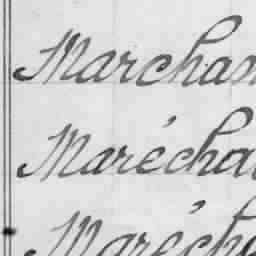 Marchan
Marécha
Maréch